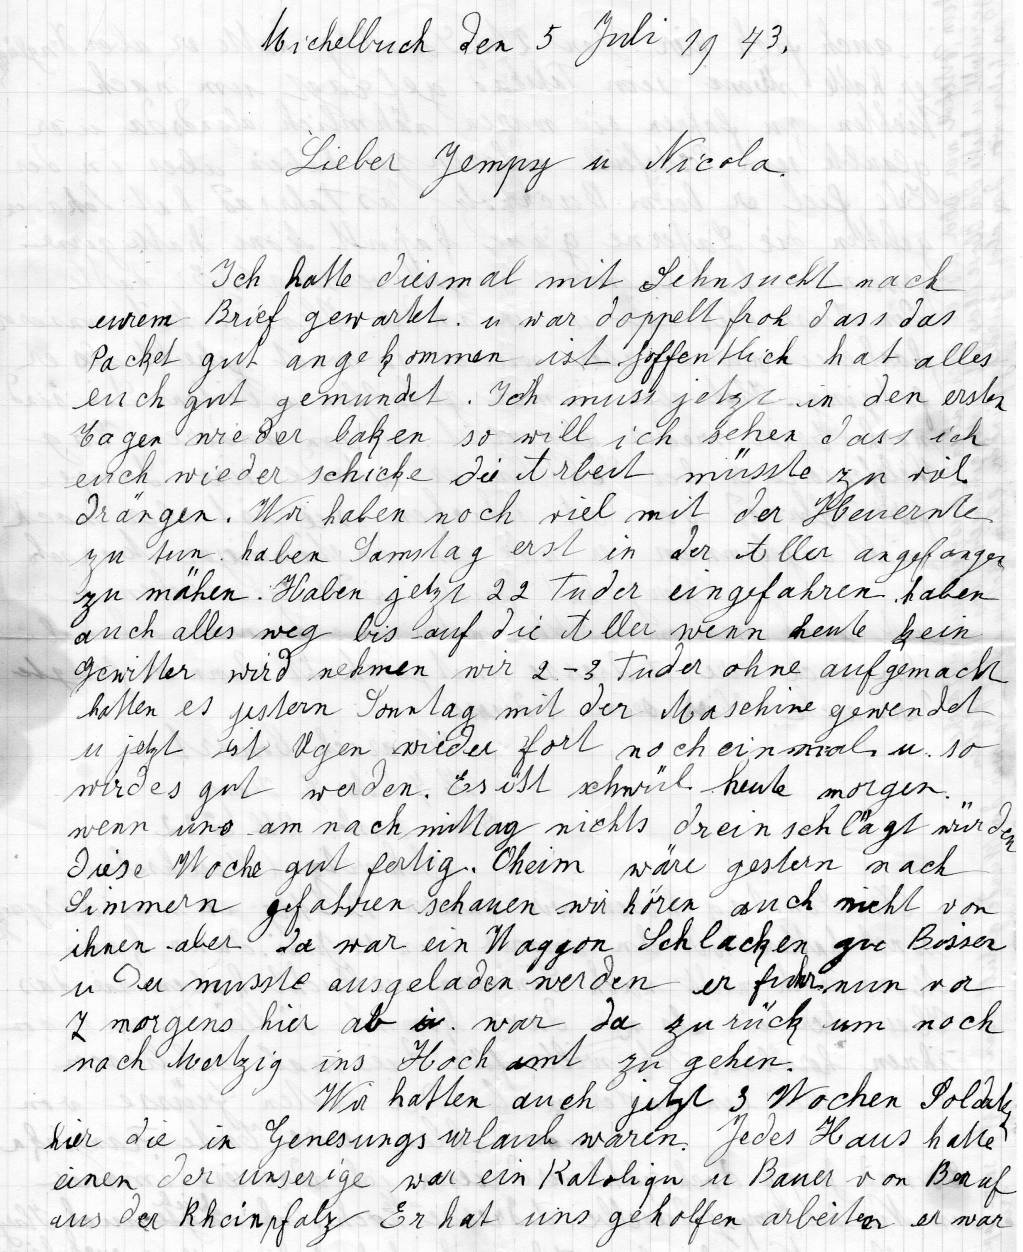 Michelbuch den 5 Juli 1943.
Lieber Jempy u Nicola.
Ich hatte diesmal mit Sehnsucht nach
eurem Brief gewartet. u war doppelt froh dass das
Packet gut angekommen ist hoffentlich hat alles
euch gut gemundet. Ich muss jetzt in den ersten
Tagen wieder baken so will ich sehen dass ich
euch wieder schicke die Arbeit müsste zu viel
drängen. Wir haben noch viel mit der Heuernte
zu tun. haben Samstag erst in der Aller angefangen
zu mähen. Haben jetzt 22 Fuder eingefahren haben
auch alles weg bis auf die Aller wenn heute kein
Gewitter wird nehmen wir 2-3 Fuder ohne aufgemacht
hatten es jestern Sonntag mit der Maschine gewendet
u jetzt ist wieder fort noch einmal u. so
wird es gut werden. Es ist schwül heute morgen.
wenn uns am nachmittag nichts drein schlägt würden
diese Woche gut fertig. Oheim wäre gestern nach
Simmern gefahren schauen wir hören auch nicht von
ihnen aber da war ein Waggon Schlacken
u der musste ausgeladen werden er fuhr nun vor
7 morgens hier ab u. war da zurück um noch
nach Mertzig ins Hochamt zu gehen.
Wir hatten auch jetzt 3 Wochen Soldaten
hier die in Genesungsurlaub waren. Jedes Haus hatte
einen der unserige war ein Katoliqu u Bauer von Beruf
aus der Rheinpfalz Er hat uns geholfen arbeiten er war